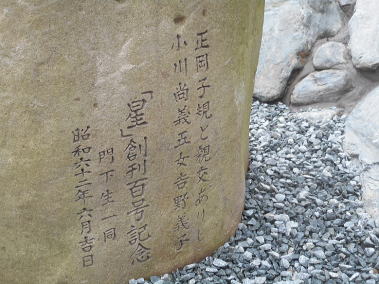 正岡子規と親交ありし
小川尚義五女吉野義子
「星」創刊百号記念
門下生一同
昭和六十二年六月吉日